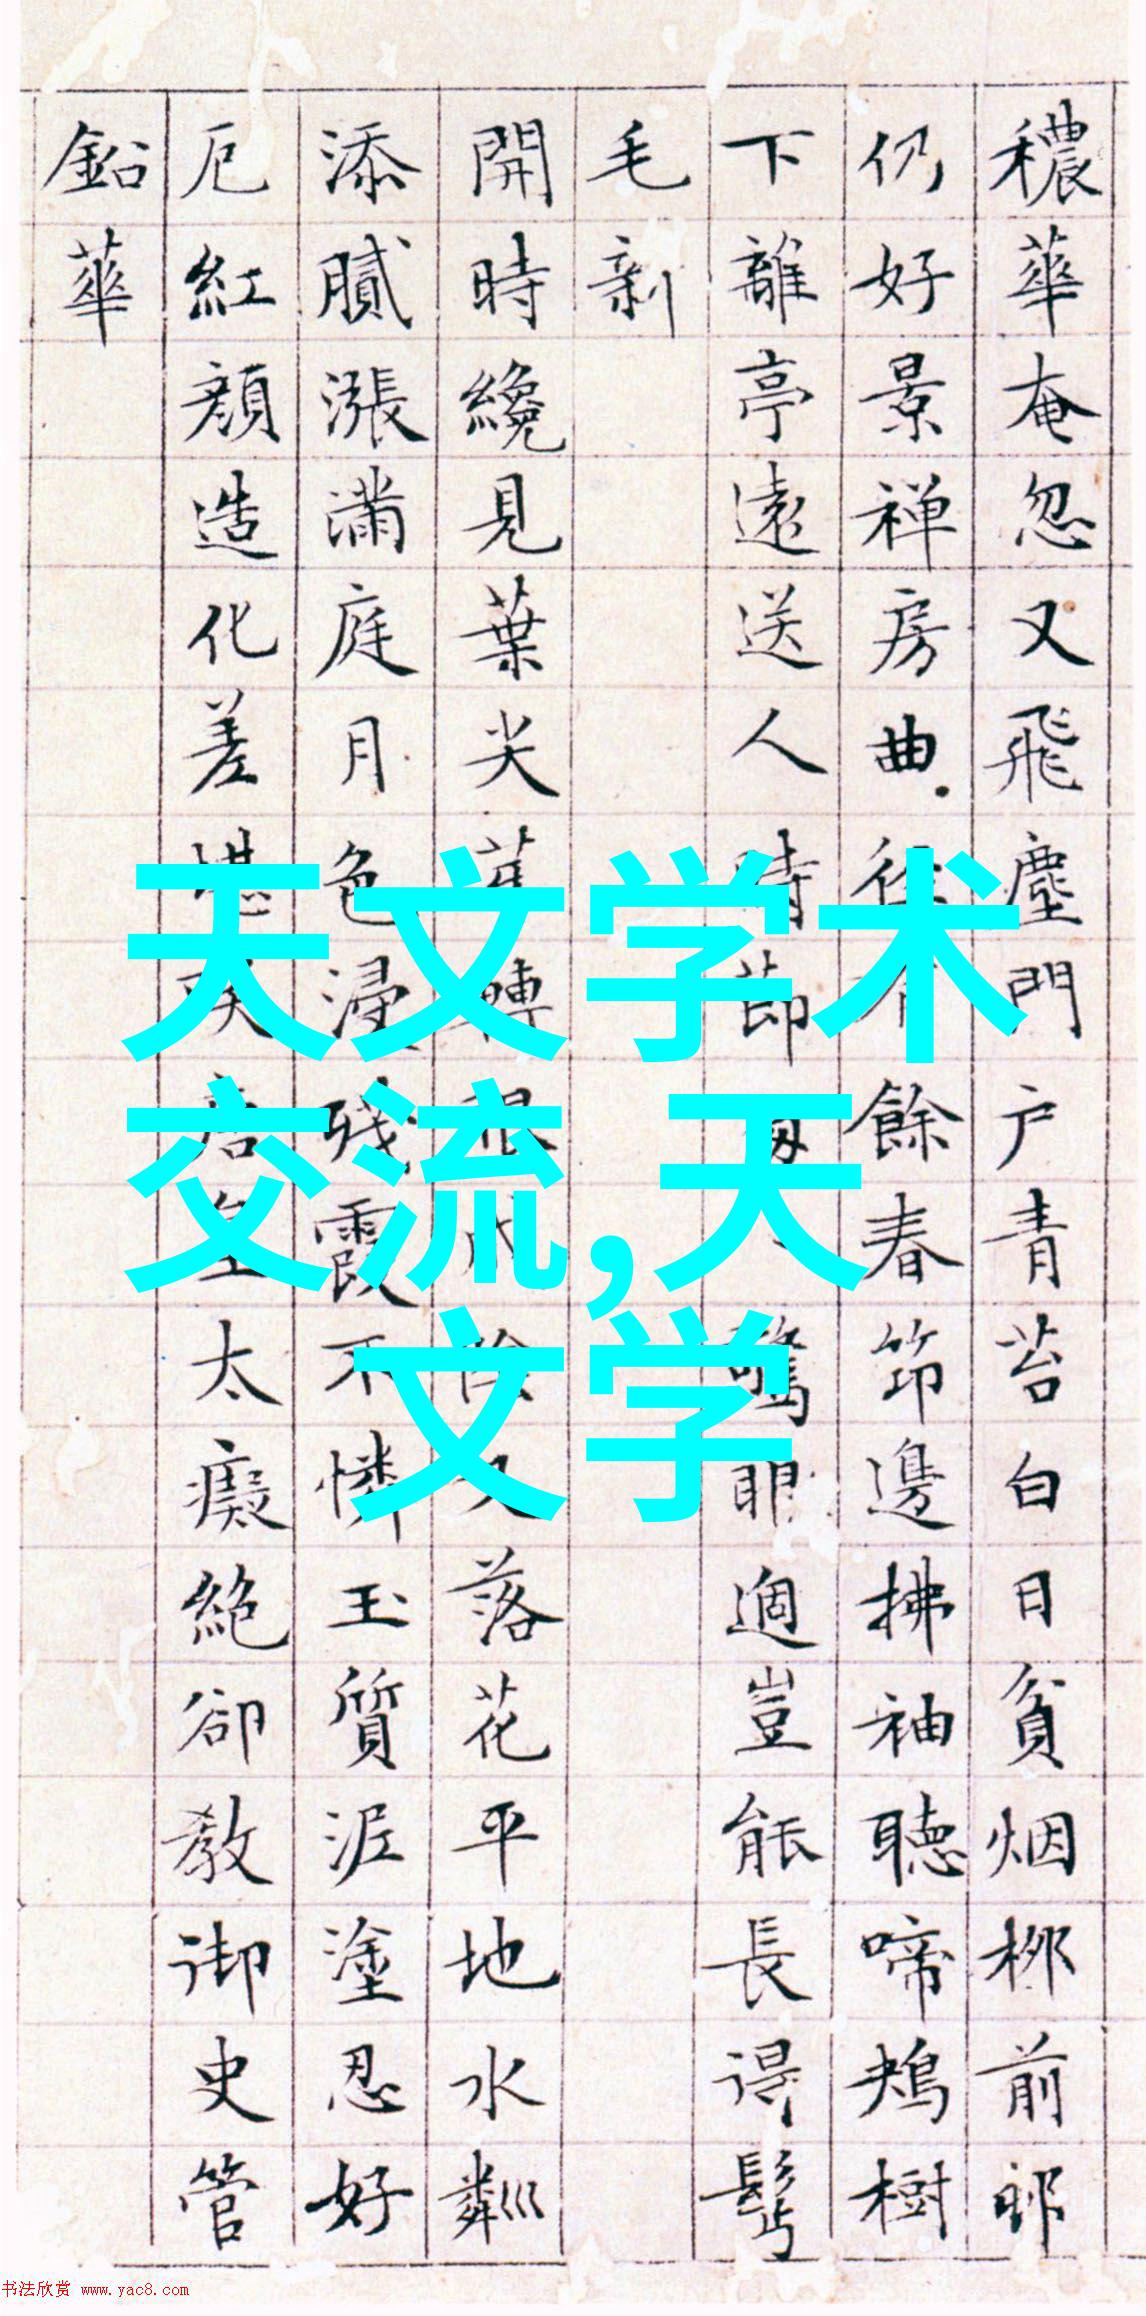 穠華奄忽又飛塵門户青苔白日貧烟栁前邨
仍好景禅房曲徑餘春笻邊拂袖聽啼鴂樹
下離亭遠送人時節驚眼適豈能長得鬢
毛新
開時纔見葉尖轉眼成陰又落花平地水粼巛
添膩漲滿庭月色浸殘霞不憐玉質泥塗忍好
厄紅顔造化差堪笑唐生太癡絶卻教御史管
鉛華
天文学术
交流,天
文学
书法欣赏 www.yac8.com